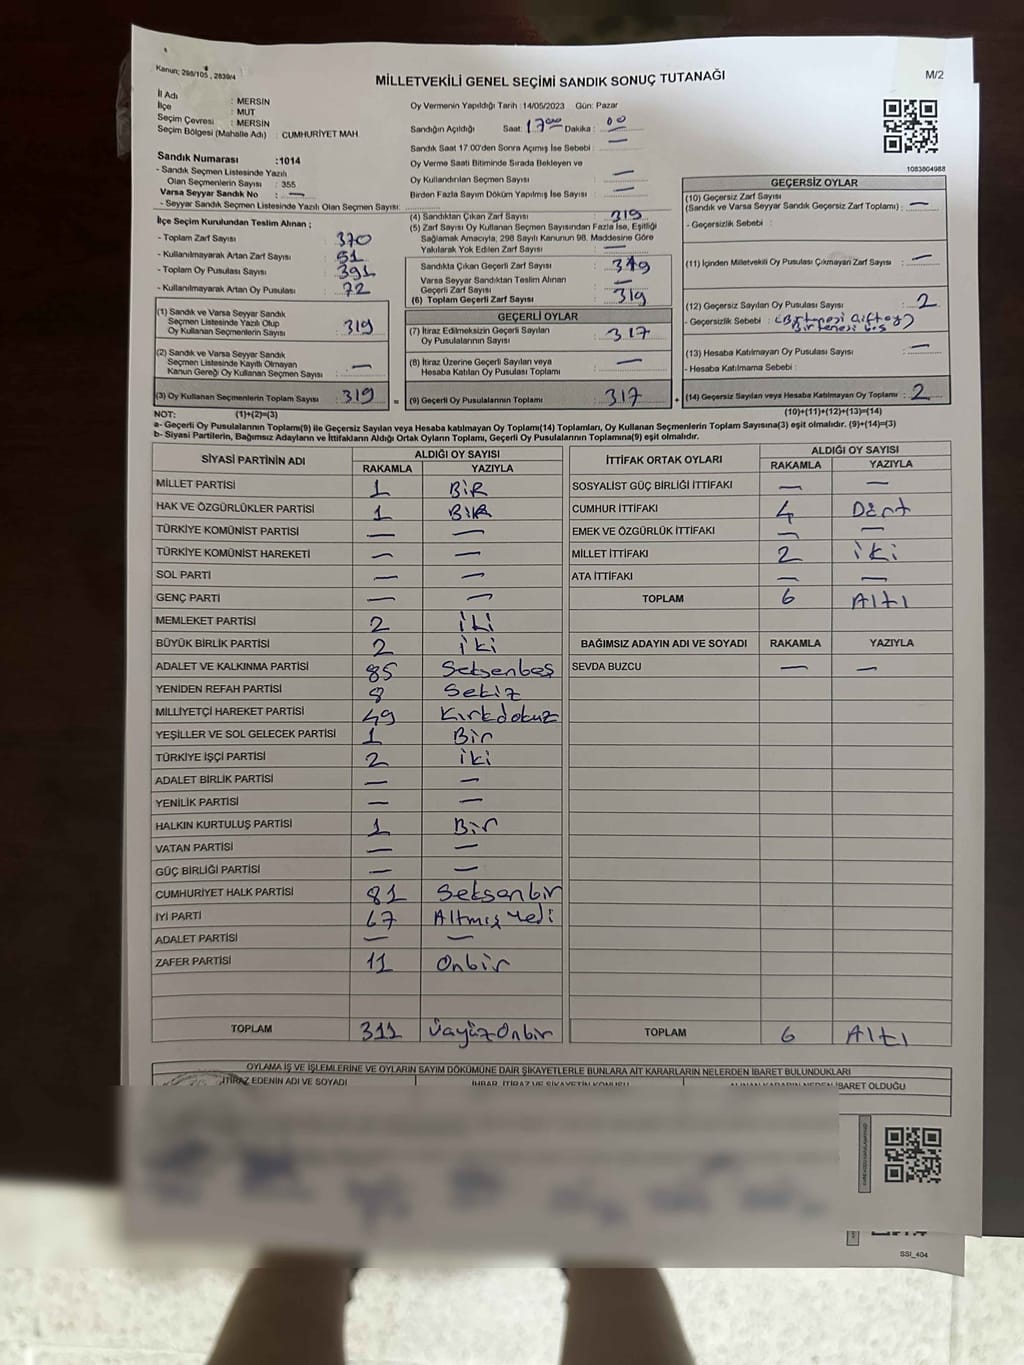 Kanun; 298/105 , 2839/4
MİLLETVEKİLİ GENEL SEÇİMİ SANDIK SONUÇ TUTANAĞI
M/2
İl Adı : MERSİN
İlçe : MUT
Seçim Çevresi : MERSİN
Seçim Bölgesi (Mahalle Adı) : CUMHURİYET MAH.
Sandık Numarası :1014
- Sandık Seçmen Listesinde Yazılı
Olan Seçmenlerin Sayısı : 355
Varsa Seyyar Sandık No : —
- Seyyar Sandık Seçmen Listesinde Yazılı Olan Seçmen Sayısı:
Oy Vermenin Yapıldığı Tarih :14/05/2023 Gün: Pazar
Sandığın Açıldığı Saat: 17 00 Dakika : 00
Sandık Saat 17:00'den Sonra Açımış İse Sebebi : —
Oy Verme Saati Bitiminde Sırada Bekleyen ve
Oy Kullandırılan Seçmen Sayısı : —
Birden Fazla Sayım Döküm Yapılmış İse Sayısı : —
1083804988
İlçe Seçim Kurulundan Teslim Alınan ;
- Toplam Zarf Sayısı : 370
- Kullanılmayarak Artan Zarf Sayısı : 51
- Toplam Oy Pusulası Sayısı : 391
- Kullanılmayarak Artan Oy Pusulası : 72
(1) Sandık ve Varsa Seyyar Sandık
Seçmen Listesinde Yazılı Olup
Oy Kullanan Seçmenlerin Sayısı : 319
(2) Sandık ve Varsa Seyyar Sandık
Seçmen Listesinde Kayıtlı Olmayan
Kanun Gereği Oy Kullanan Seçmen Sayısı : —
(3) Oy Kullanan Seçmenlerin Toplam Sayısı : 319
=
(4) Sandıktan Çıkan Zarf Sayısı : 319
(5) Zarf Sayısı Oy Kullanan Seçmen Sayısından Fazla İse, Eşitliği
Sağlamak Amacıyla, 298 Sayılı Kanunun 98. Maddesine Göre
Yakılarak Yok Edilen Zarf Sayısı : —
Sandıkta Çıkan Geçerli Zarf Sayısı : 319
Varsa Seyyar Sandıktan Teslim Alınan
Geçerli Zarf Sayısı : —
(6) Toplam Geçerli Zarf Sayısı : 319
GEÇERLİ OYLAR
(7) İtiraz Edilmeksizin Geçerli Sayılan
Oy Pusulasının Sayısı : 317
(8) İtiraz Üzerine Geçerli Sayılan veya
Hesaba Katılan Oy Pusulası Toplamı : —
(9) Geçerli Oy Pusulalarının Toplamı : 317
+
GEÇERSİZ OYLAR
(10) Geçersiz Zarf Sayısı
(Sandık ve Varsa Seyyar Sandık Geçersiz Zarf Toplamı) : —
- Geçersizlik Sebebi :
(11) İçinden Milletvekili Oy Pusulası Çıkmayan Zarf Sayısı : —
(12) Geçersiz Sayılan Oy Pusulası Sayısı : 2
- Geçersizlik Sebebi : (Birtenesi çift oy)
Birtenesi boş
(13) Hesaba Katılmayan Oy Pusulası Sayısı : —
- Hesaba Katılmama Sebebi :
(14) Geçersiz Sayılan veya Hesaba Katılmayan Oy Toplamı : 2
NOT: (1)+(2)=(3) (10)+(11)+(12)+(13)=(14)
a- Geçerli Oy Pusulalarının Toplamı(9) ile Geçersiz Sayılan veya Hesaba katılmayan Oy Toplamı(14) Toplamları, Oy Kullanan Seçmenlerin Toplam Sayısına(3) eşit olmalıdır. (9)+(14)=(3)
b- Siyasi Partilerin, Bağımsız Adayların ve İttifakların Aldığı Ortak Oyların Toplamı, Geçerli Oy Pusulalarının Toplamına(9) eşit olmalıdır.
SİYASİ PARTİNİN ADI ALDIĞI OY SAYISI
RAKAMLA YAZIYLA
MİLLET PARTİSİ 1 BİR
HAK VE ÖZGÜRLÜKLER PARTİSİ 1 BİR
TÜRKİYE KOMÜNİST PARTİSİ — —
TÜRKİYE KOMÜNİST HAREKETİ — —
SOL PARTİ — —
GENÇ PARTİ — —
MEMLEKET PARTİSİ 2 İki
BÜYÜK BİRLİK PARTİSİ 2 iki
ADALET VE KALKINMA PARTİSİ 85 Seksenbeş
YENİDEN REFAH PARTİSİ 8 Sekiz
MİLLİYETÇİ HAREKET PARTİSİ 49 Kırkdokuz
YEŞİLLER VE SOL GELECEK PARTİSİ 1 Bir
TÜRKİYE İŞÇİ PARTİSİ 2 iki
ADALET BİRLİK PARTİSİ — —
YENİLİK PARTİSİ — —
HALKIN KURTULUŞ PARTİSİ 1 Bir
VATAN PARTİSİ — —
GÜÇ BİRLİĞİ PARTİSİ — —
CUMHURİYET HALK PARTİSİ 81 Seksenbir
İYİ PARTİ 67 Altmış Yedi
ADALET PARTİSİ — —
ZAFER PARTİSİ 11 Onbir
TOPLAM 311 ÜçyüzOnbir
İTTİFAK ORTAK OYLARI ALDIĞI OY SAYISI
RAKAMLA YAZIYLA
SOSYALİST GÜÇ BİRLİĞİ İTTİFAKI — —
CUMHUR İTTİFAKI 4 Dört
EMEK VE ÖZGÜRLÜK İTTİFAKI — —
MİLLET İTTİFAKI 2 iki
ATA İTTİFAKI — —
TOPLAM 6 Altı
BAĞIMSIZ ADAYIN ADI VE SOYADI RAKAMLA YAZIYLA
SEVDA BUZCU — —
TOPLAM 6 Altı
OYLAMA İŞ VE İŞLEMLERİNE VE OYLARIN SAYIM DÖKÜMÜNE DAİR ŞİKAYETLERLE BUNLARA AİT KARARLARIN NELERDEN İBARET BULUNDUKLARI
İTİRAZ EDENİN ADI VE SOYADI İHBAR, İTİRAZ VE ŞİKAYETİN KONUSU ALINAN KARARIN NEDEN İBARET OLDUĞU
SSI_404